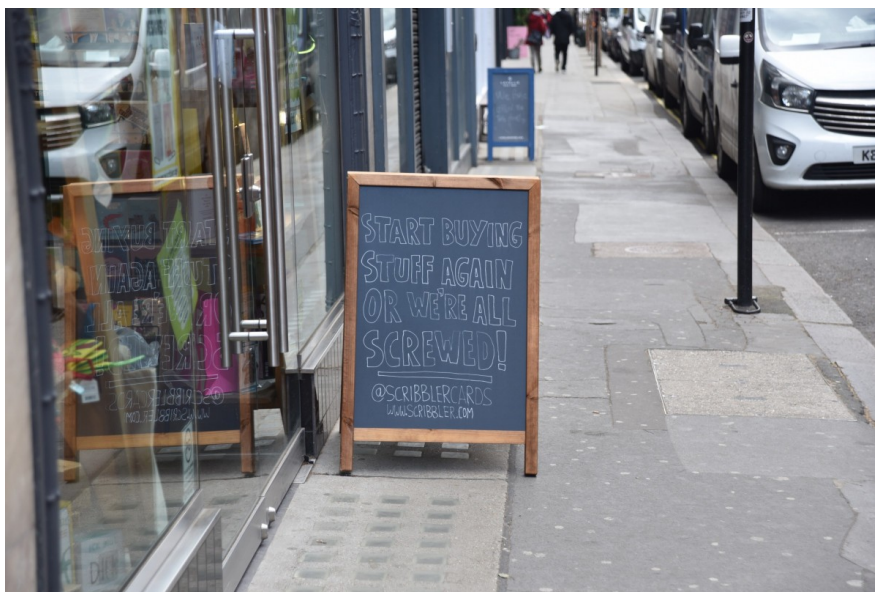 START BUYING
STUFF AGAIN
OR WE'RE ALL
SCREWED!
@SCRIBBLERCARDS
WWW.SCRIBBLER.COM
K8